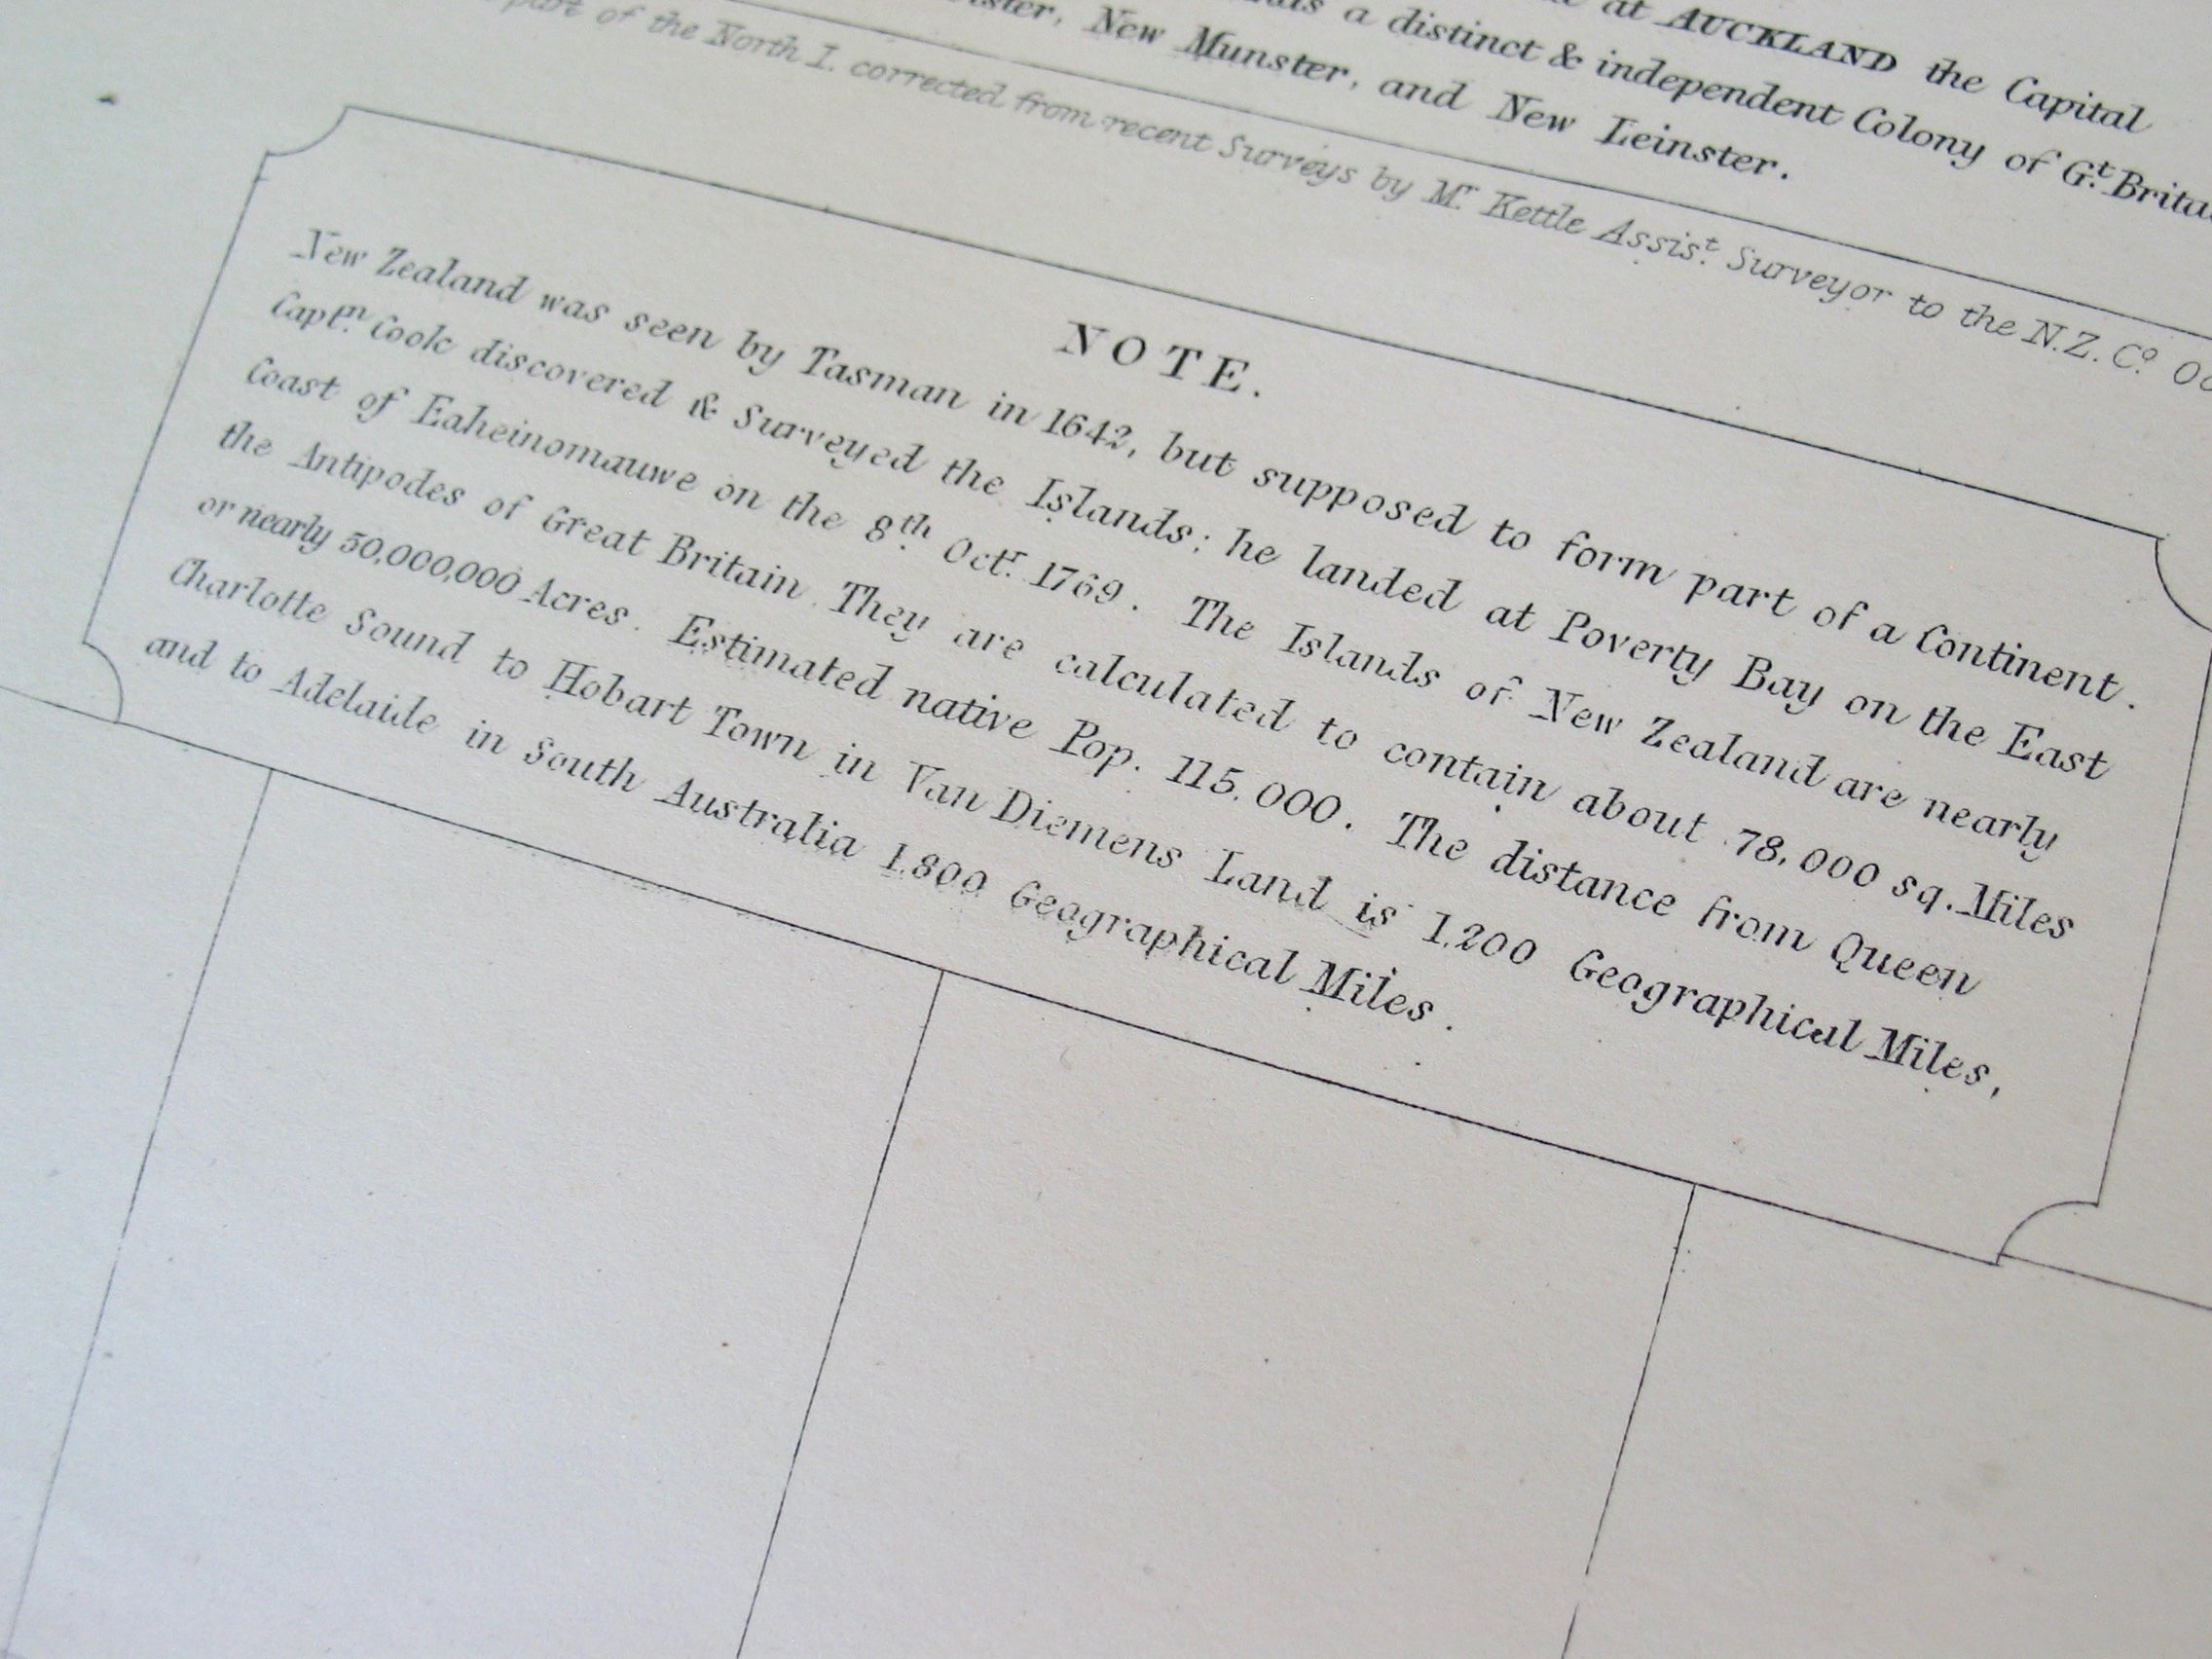 at AUCKLAND the Capital
a distinct & independent Colony of Gt. Britain
New Munster, and New Leinster.
part of the North I. corrected from recent Surveys by Mr. Kettle Assist. Surveyor to the N.Z. Co.
NOTE.
New Zealand was seen by Tasman in 1642, but supposed to form part of a Continent.
Captn. Cook discovered & Surveyed the Islands; he landed at Poverty Bay on the East
Coast of Eaheinomauwe on the 8th. Octr. 1769. The Islands of New Zealand are nearly
the Antipodes of Great Britain. They are calculated to contain about 78,000 sq. Miles
or nearly 50,000,000 Acres. Estimated native Pop. 115,000. The distance from Queen
Charlotte Sound to Hobart Town in Van Diemens Land is 1,200 Geographical Miles,
and to Adelaide in South Australia 1,800 Geographical Miles.